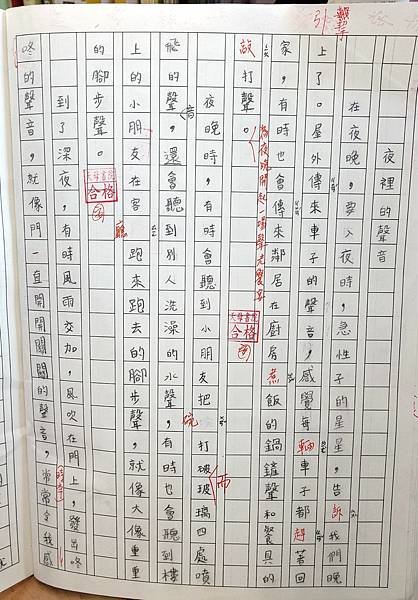 夜裡的聲音
在夜晚，要入夜時，急性子的星星，告訴我們晚
上了。屋外傳來車子的聲音，感覺每輛車子都趕著回
家，有時也會傳來鄰居在廚房煮飯的鍋鏟聲和餐具的
敲打聲。
為夜晚開起一場聲光饗宴
合格
夜晚時，有時會聽到小朋友把打破玻璃四處噴
碗
而
飛的聲音，還會聽到別人洗澡的水聲，有時也會聽到樓
上的小朋友在客廳跑來跑去的腳步聲，就像大像重重
的腳步聲。
合格
到了深夜，有時風雨交加，風吹在門上，發出咚
咚的聲音，就像門一直開開關關的聲音，常常令我感